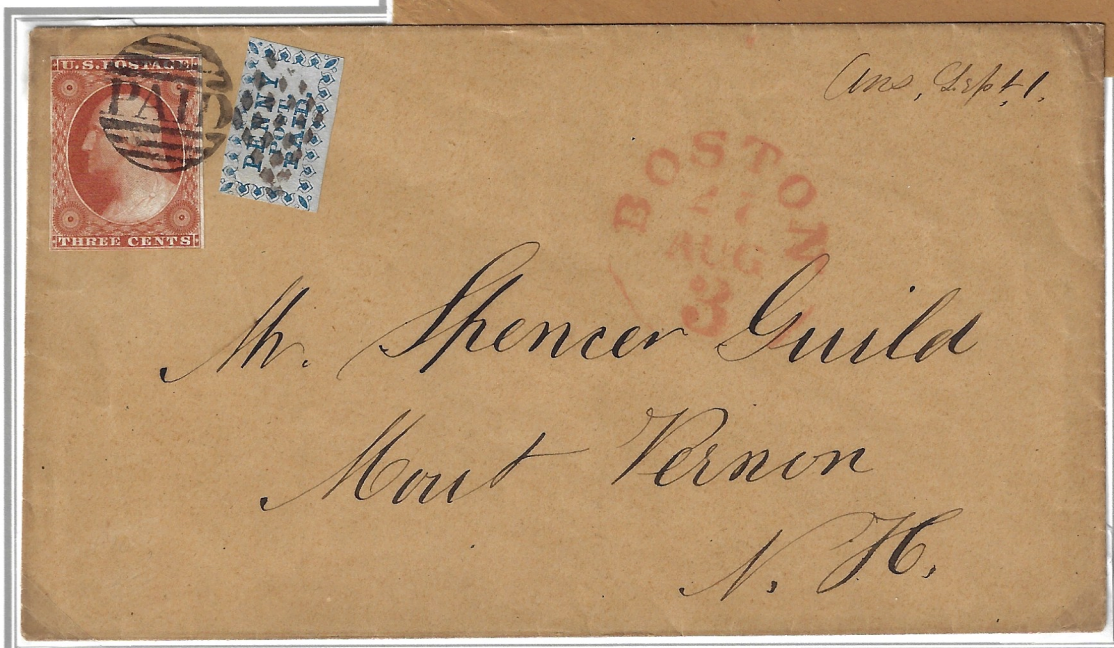 U.S. POSTAGE
PAID
THREE CENTS
PENNY
POST
PAID
Ans, Sept, 1.
BOSTON
27
AUG
3
Mr. Spencer Guild
Mout Vernon
N. H.